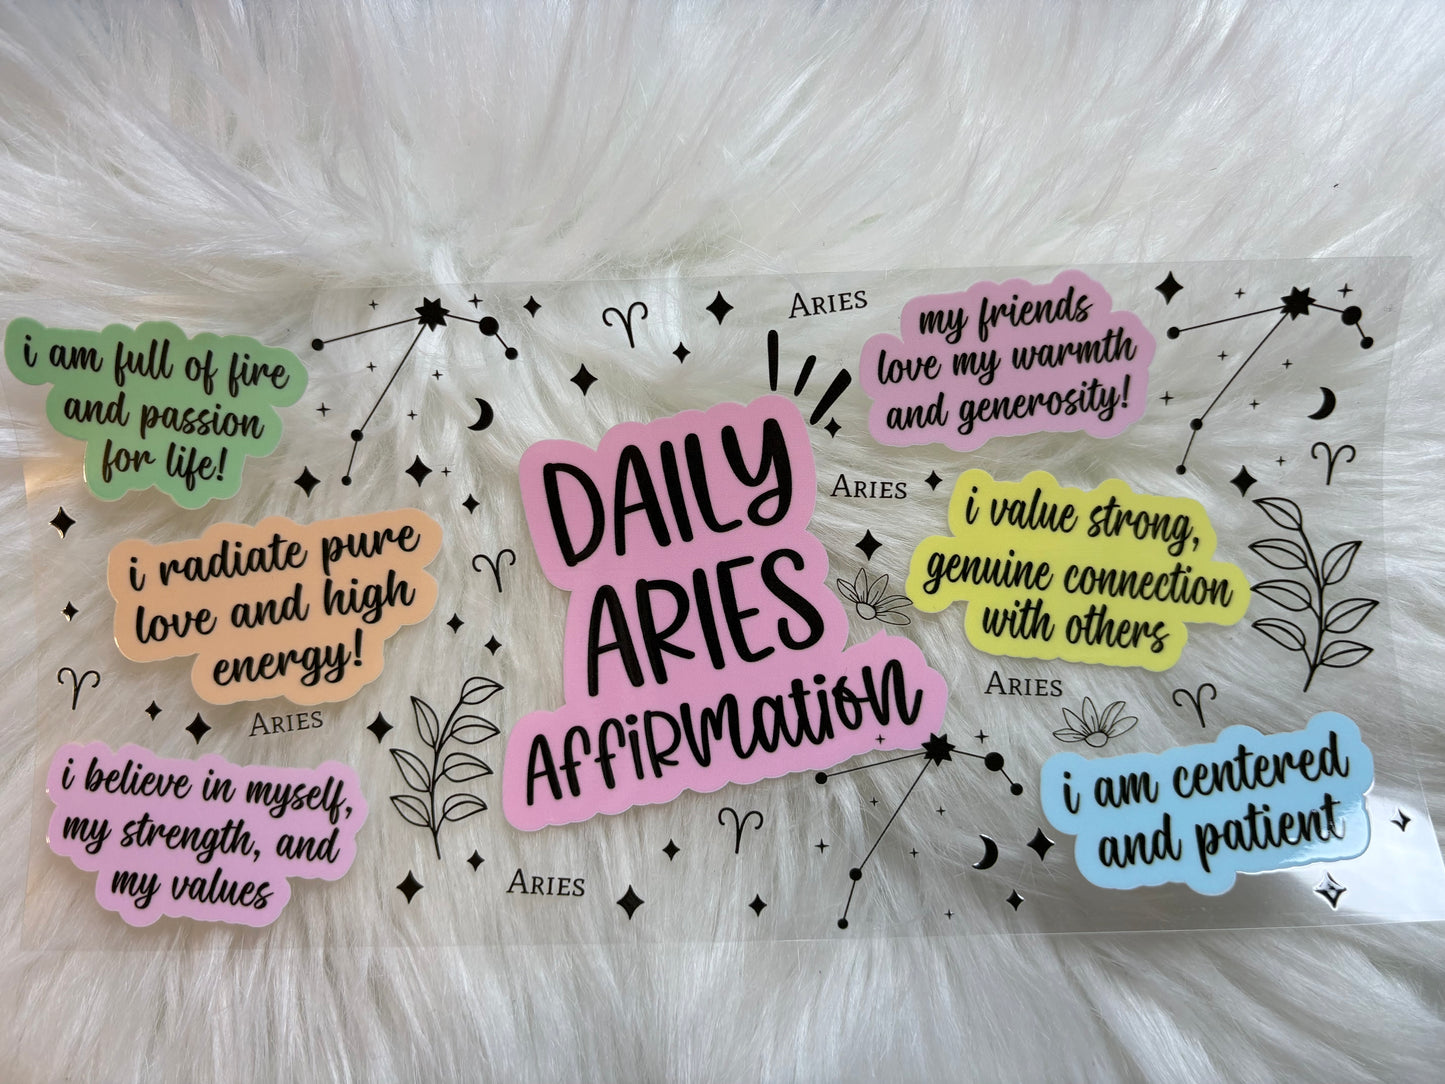 i am full of fire
and passion
for life!
i radiate pure
love and high
energy!
ARIES
i believe in myself,
my strength, and
my values
ARIES
DAILY
ARIES
AFFiRMatioN
ARIES
my friends
love my warmth
and generosity!
ARIES
i value strong,
genuine connection
with others
ARIES
i am centered
and patient